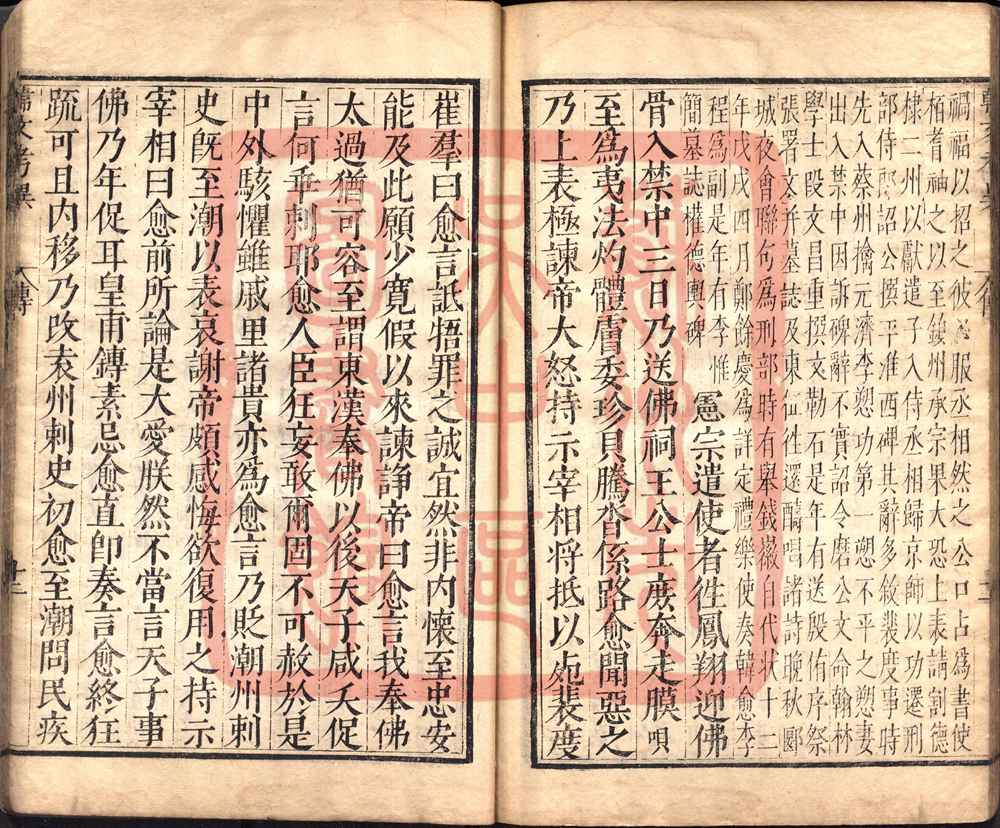 禍福以招之彼服丞相然之公口占為書使
栢耆袖之以至鎮州承宗果大恐上表請割德
棣二州以獻遣子入侍丞相歸京師以功遷刑
部侍郎詔公撰平淮西碑其辭多敘裴度事時
先入蔡州擒元濟李愬功第一愬不平之愬妻
出入禁中因訴碑辭不實詔令磨公文命翰林
學士段文昌重撰文勒石是年有送殷侑序祭
張署文并墓誌及東
城夜會聯句為刑部時有舉錢徽自代狀十二
年戊戌四月鄭餘慶為詳定禮樂使奏韓愈李
程為副是年有李惟
簡墓誌權德輿碑
憲宗遣使者徃鳳翔迎佛
骨入禁中三日乃送佛祠王公士庶奔走膜唄
至為夷法灼體膚委珍貝騰沓係路愈聞惡之
乃上表極諫帝大怒持示宰相將抵以死裴度
崔羣曰愈言詆牾罪之誠宜然非內懷至忠安
能及此願少寛假以來諫諍帝曰愈言我奉佛
太過猶可容至謂東漢奉佛以後天子咸夭促
言何乖剌耶愈人臣狂妄敢爾固不可赦於是
中外駭懼雖戚里諸貴亦為愈言乃貶潮州刺
史旣至潮以表哀謝帝頗感悔欲復用之持示
宰相曰愈前所論是大愛朕然不當言天子事
佛乃年促耳皇甫鎛素忌愈直卽奏言愈終狂
疏可且內移乃改袁州刺史初愈至潮問民疾